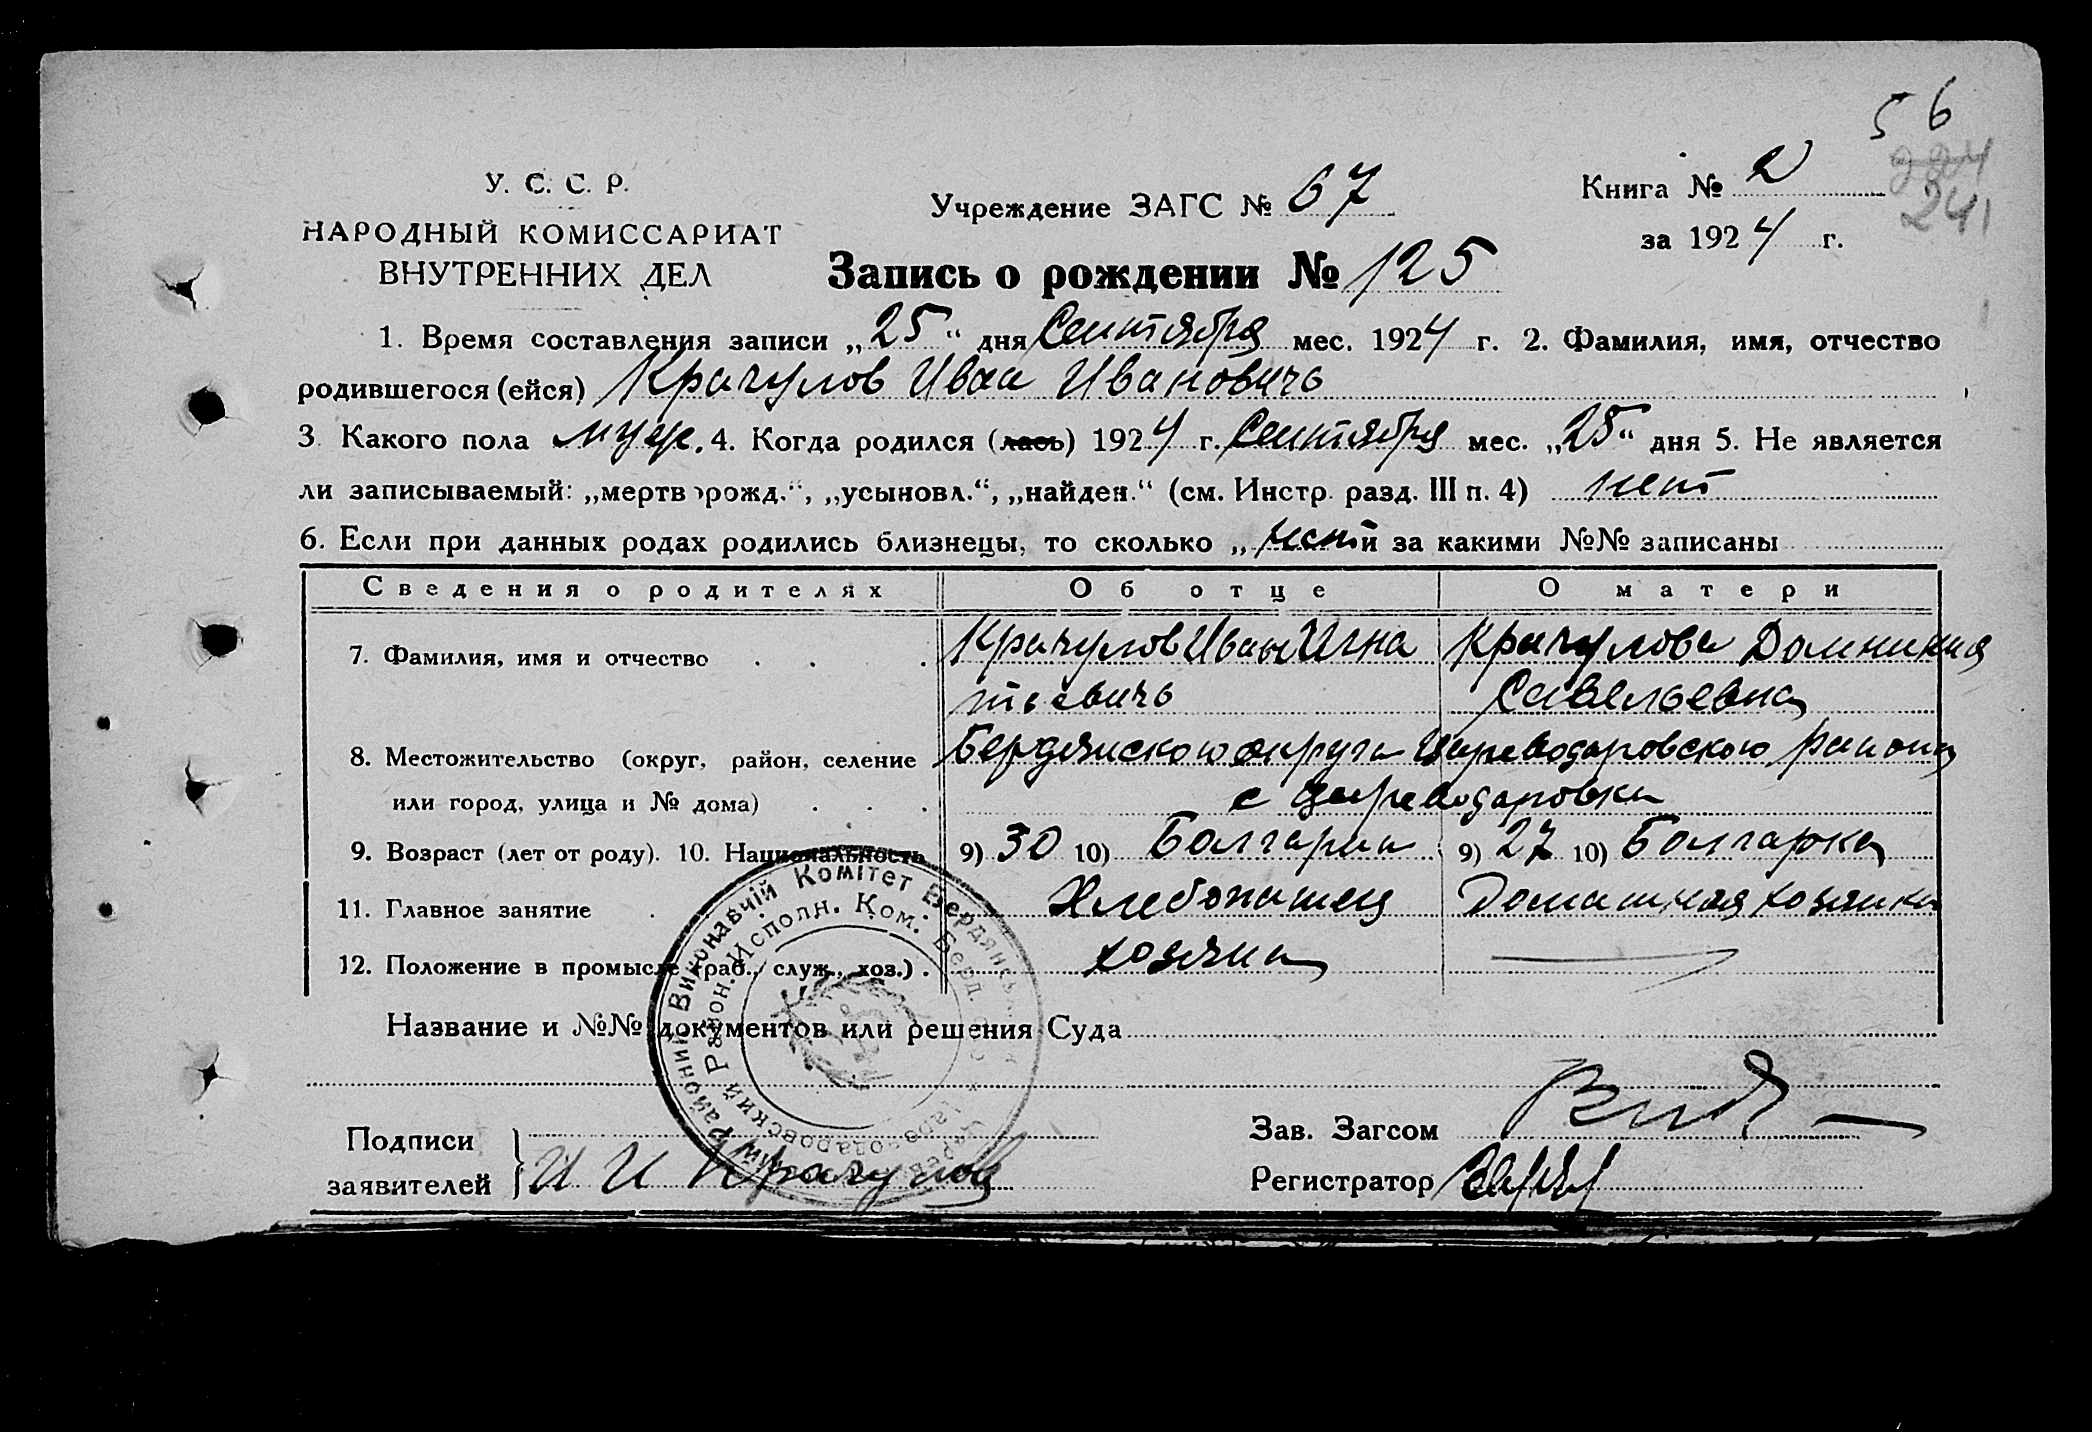 56
224
241
У. С. С. Р.
НАРОДНЫЙ КОМИССАРИАТ
ВНУТРЕННИХ ДЕЛ
Учреждение ЗАГС № 67
Книга № 2
за 1924 г.
Запись о рождении № 125
1. Время составления записи „25“ дня Сентября мес. 1924 г. 2. Фамилия, имя, отчество
родившегося (ейся) Крачулов Иван Ивановичъ
3. Какого пола муж. 4. Когда родился (лась) 1924 г. Сентября мес. „25“ дня 5. Не является
ли записываемый: „мертворожд.“, „усыновл.“, „найден.“ (см. Инстр. разд. III п. 4) нет
6. Если при данных родах родились близнецы, то сколько „нет и за какими №№ записаны
Сведения о родителях Об отце О матери
7. Фамилия, имя и отчество Крачулов Иван Игна Крачулова Домникия
тьевичъ Савельевна
8. Местожительство (округ, район, селение Бердянского округа Цареводаровского района
или город, улица и № дома) с Цареводаровки
9. Возраст (лет от роду). 10. Национальность 9) 30 10) Болгарин 9) 27 10) Болгарка
11. Главное занятие Хлебопашец Домашняя хозяйка
12. Положение в промысле (раб., служ., хоз.) хозяин
Название и №№ документов или решения Суда
Районний Виконавчій Комітет Бердянськ
Цареводаровский Район. Исполн. Ком. Берд.
Подписи
заявителей И И Крачулов
Зав. Загсом
Регистратор